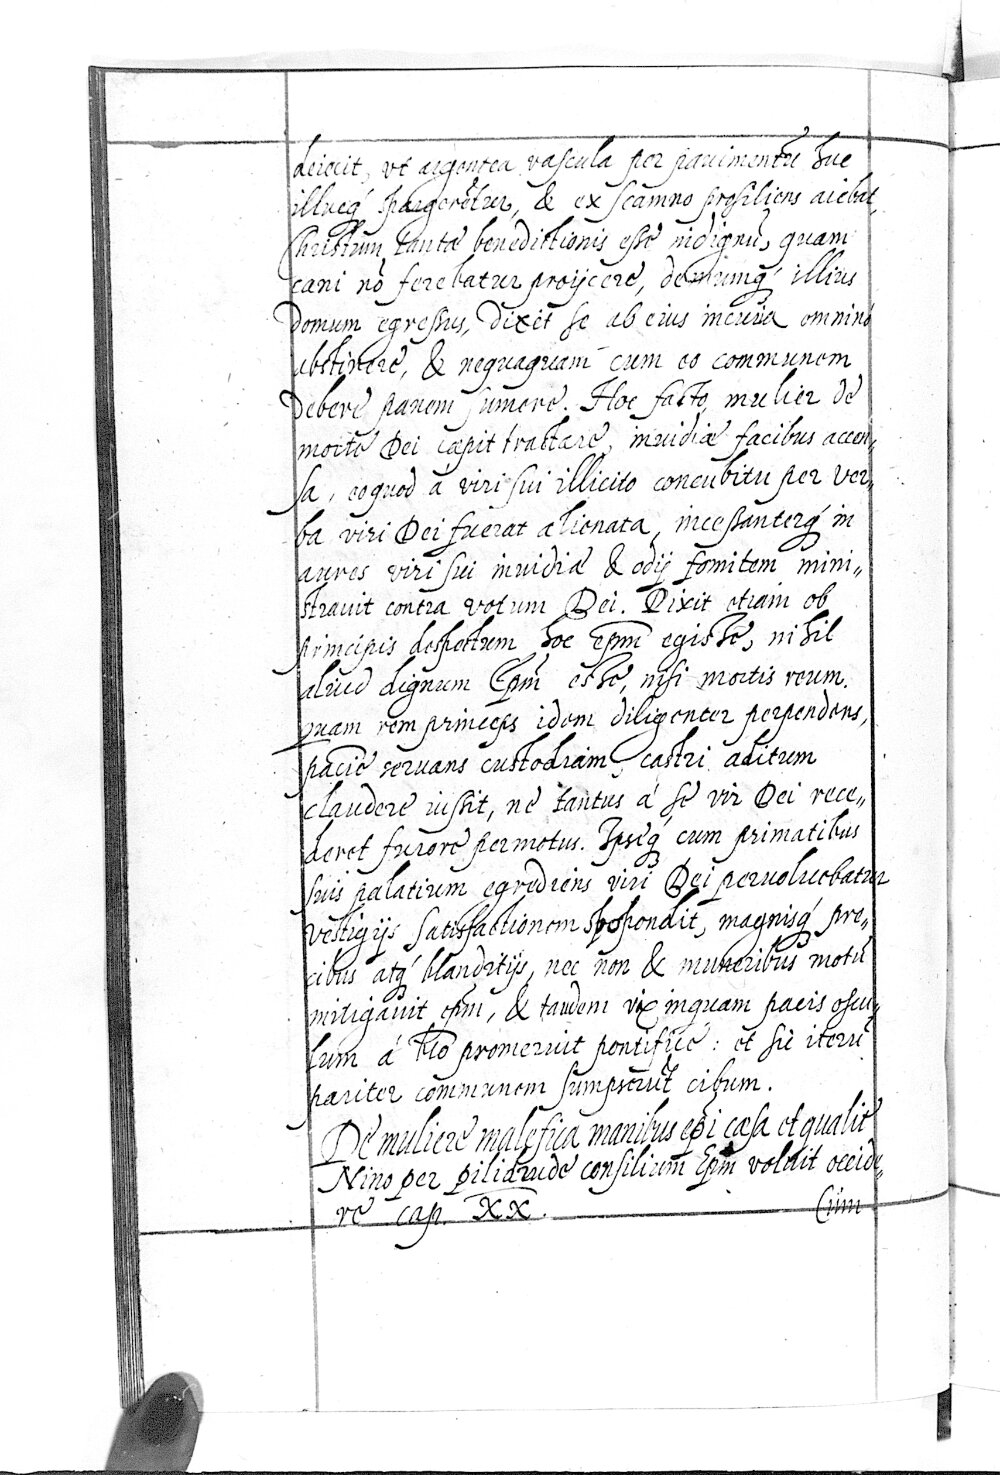 deiecit, vt argentea vascula per pauimentũ huc
illucq́ spargerẽtur, & ex scamno prosiliens aiebat,
Christum tantæ benedictionis esse indignũ, quam
cani nõ ferebatur proijcere, demumq́ illius
domum egressus, dixit se ab eius incuria omninò
abstinere, & nequaquam cum eo communem
debere panem sumere. Hoc facto, mulier de
morte Dei cæpit tractare, inuidiæ facibus accen-
sa, eoquod á viri sui illicito concubitu per ver-
ba viri Dei fuerat alienata, incessanterq́ in
aures viri sui inuidiæ & odij fomitem mini-
strauit contra votum Dei. Dixit etiam ob
principis despectum hoc Epm̃ egisse, nihil
aliud dignum Epm̃ esse, nisi mortis reum.
quam rem princeps idem diligenter perpendens,
pacis seruans custodiam, castri aditum
claudere iussit, ne tantus á se vir Dei rece-
deret furore permotus. Ipseq́ cum primatibus
suis palatium egrediens viri Dei peruoluebatur
vestigijs satisfactionem spopondit, magnisq́ pre-
cibus atq́ blanditijs, nec non & muneribus motũ
mitigauit epm̃, & tandem vix inquam pacis oscu-
lum á Bto promeruit pontifice: et sic iterũ
pariter communem sumpserũt cibum.
De muliere malefica manibus epi cæsa et qualit̃
Nino per piliarude consilium Epm̃ voluit occide-
re cap. XX.
Cum